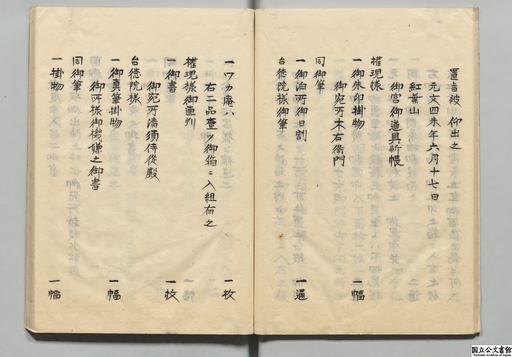 置旨被 仰出之
元文四未年六月十七日
紅葉山
御宮御道具新帳
権現様
一御朱印掛物 一幅
御宛所木右衛門
同御筆
一御泊所御日割 一通
台徳院様御筆
一ワカ庵ハ 一枚
右二品壹ツ御箱ニ入組有之
権現様御画判
一御書 一枚
御宛所藩須侍従殿
台徳院様
一御真筆掛物 一幅
御所様御機嫌之御書
同御筆
一掛物 一幅
国立公文書館
National Archives of Japan